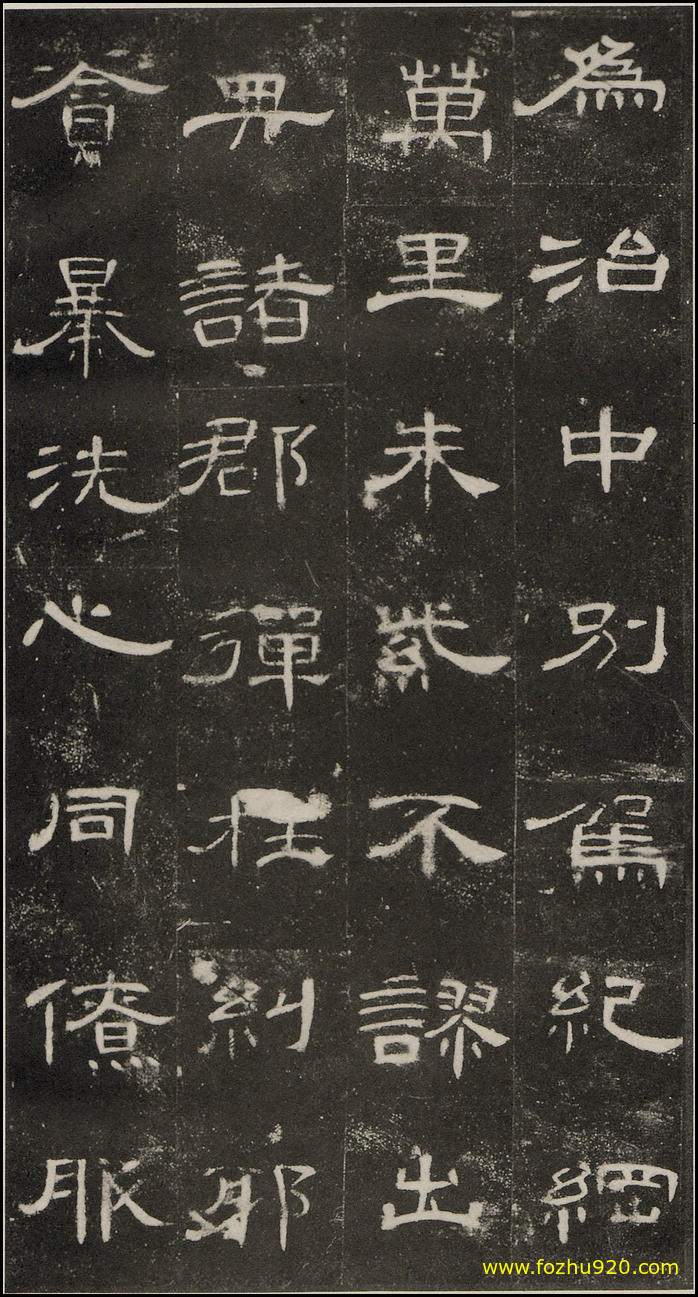 為治中別駕紀綱
萬里朱紫不謬出
典諸郡彈枉糾邪
貪暴洗心同僚服
www.fozhu920.com